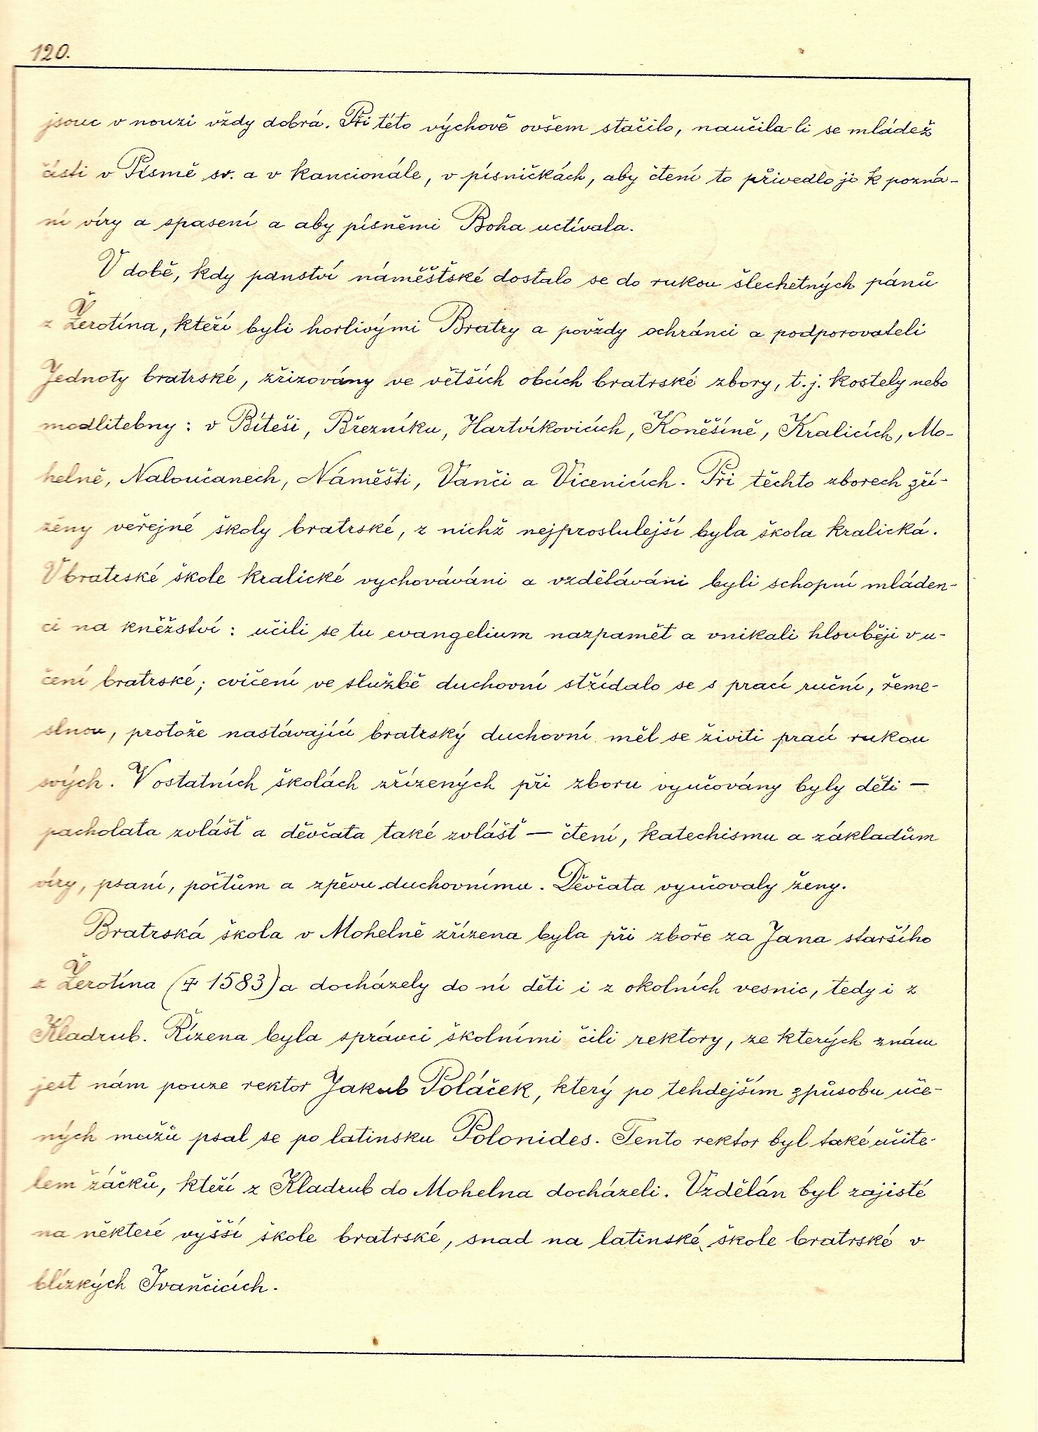 120.
jsouc v nouzi vždy dobrá. Při této výchově ovšem stačilo, naučila-li se mládež
čísti v Písmě sv. a v kancionále, v písničkách, aby čtení to přivedlo ji k pozná-
ní víry a spasení a aby písněmi Boha uctívala.
V době, kdy panství náměšťské dostalo se do rukou šlechetných pánů
z Žerotína, kteří byli horlivými Bratry a povždy ochránci a podporovateli
Jednoty bratrské, zřizovány ve větších obcích bratrské zbory, t.j. kostely nebo
modlitebny: v Bíteši, Březníku, Hartvíkovicích, Koněšíně, Kralicích, Mo-
helně, Naloučanech, Náměšti, Vanči a Vicenicích. Při těchto zborech zří-
zeny veřejné školy bratrské, z nichž nejproslulejší byla škola kralická.
V bratrské škole kralické vychováváni a vzděláváni byli schopní mláden-
ci na kněžství: učili se tu evangelium nazpamět a vnikali hlouběji v u-
čení bratrské; cvičení ve službě duchovní střídalo se s prací ruční, řeme-
slnou, protože nastávající bratrský duchovní měl se živiti prací rukou
svých. V ostatních školách zřízených při zboru vyučovány byly děti —
pacholata zvlášť a děvčata také zvlášť — čtení, katechismu a základům
víry, psaní, počtům a zpěvu duchovnímu. Děvčata vyučovaly ženy.
Bratrská škola v Mohelně zřízena byla při zboře za Jana staršího
z Žerotína († 1583) a docházely do ní děti i z okolních vesnic, tedy i z
Kladrub. Řízena byla správci školními čili rektory, ze kterých znám
jest nám pouze rektor Jakub Poláček, který po tehdejším způsobu uče-
ných mužů psal se po latinsku Polonides. Tento rektor byl také učite-
lem žáčků, kteří z Kladrub do Mohelna docházeli. Vzdělán byl zajisté
na některé vyšší škole bratrské, snad na latinské škole bratrské v
blízkých Ivančicích.